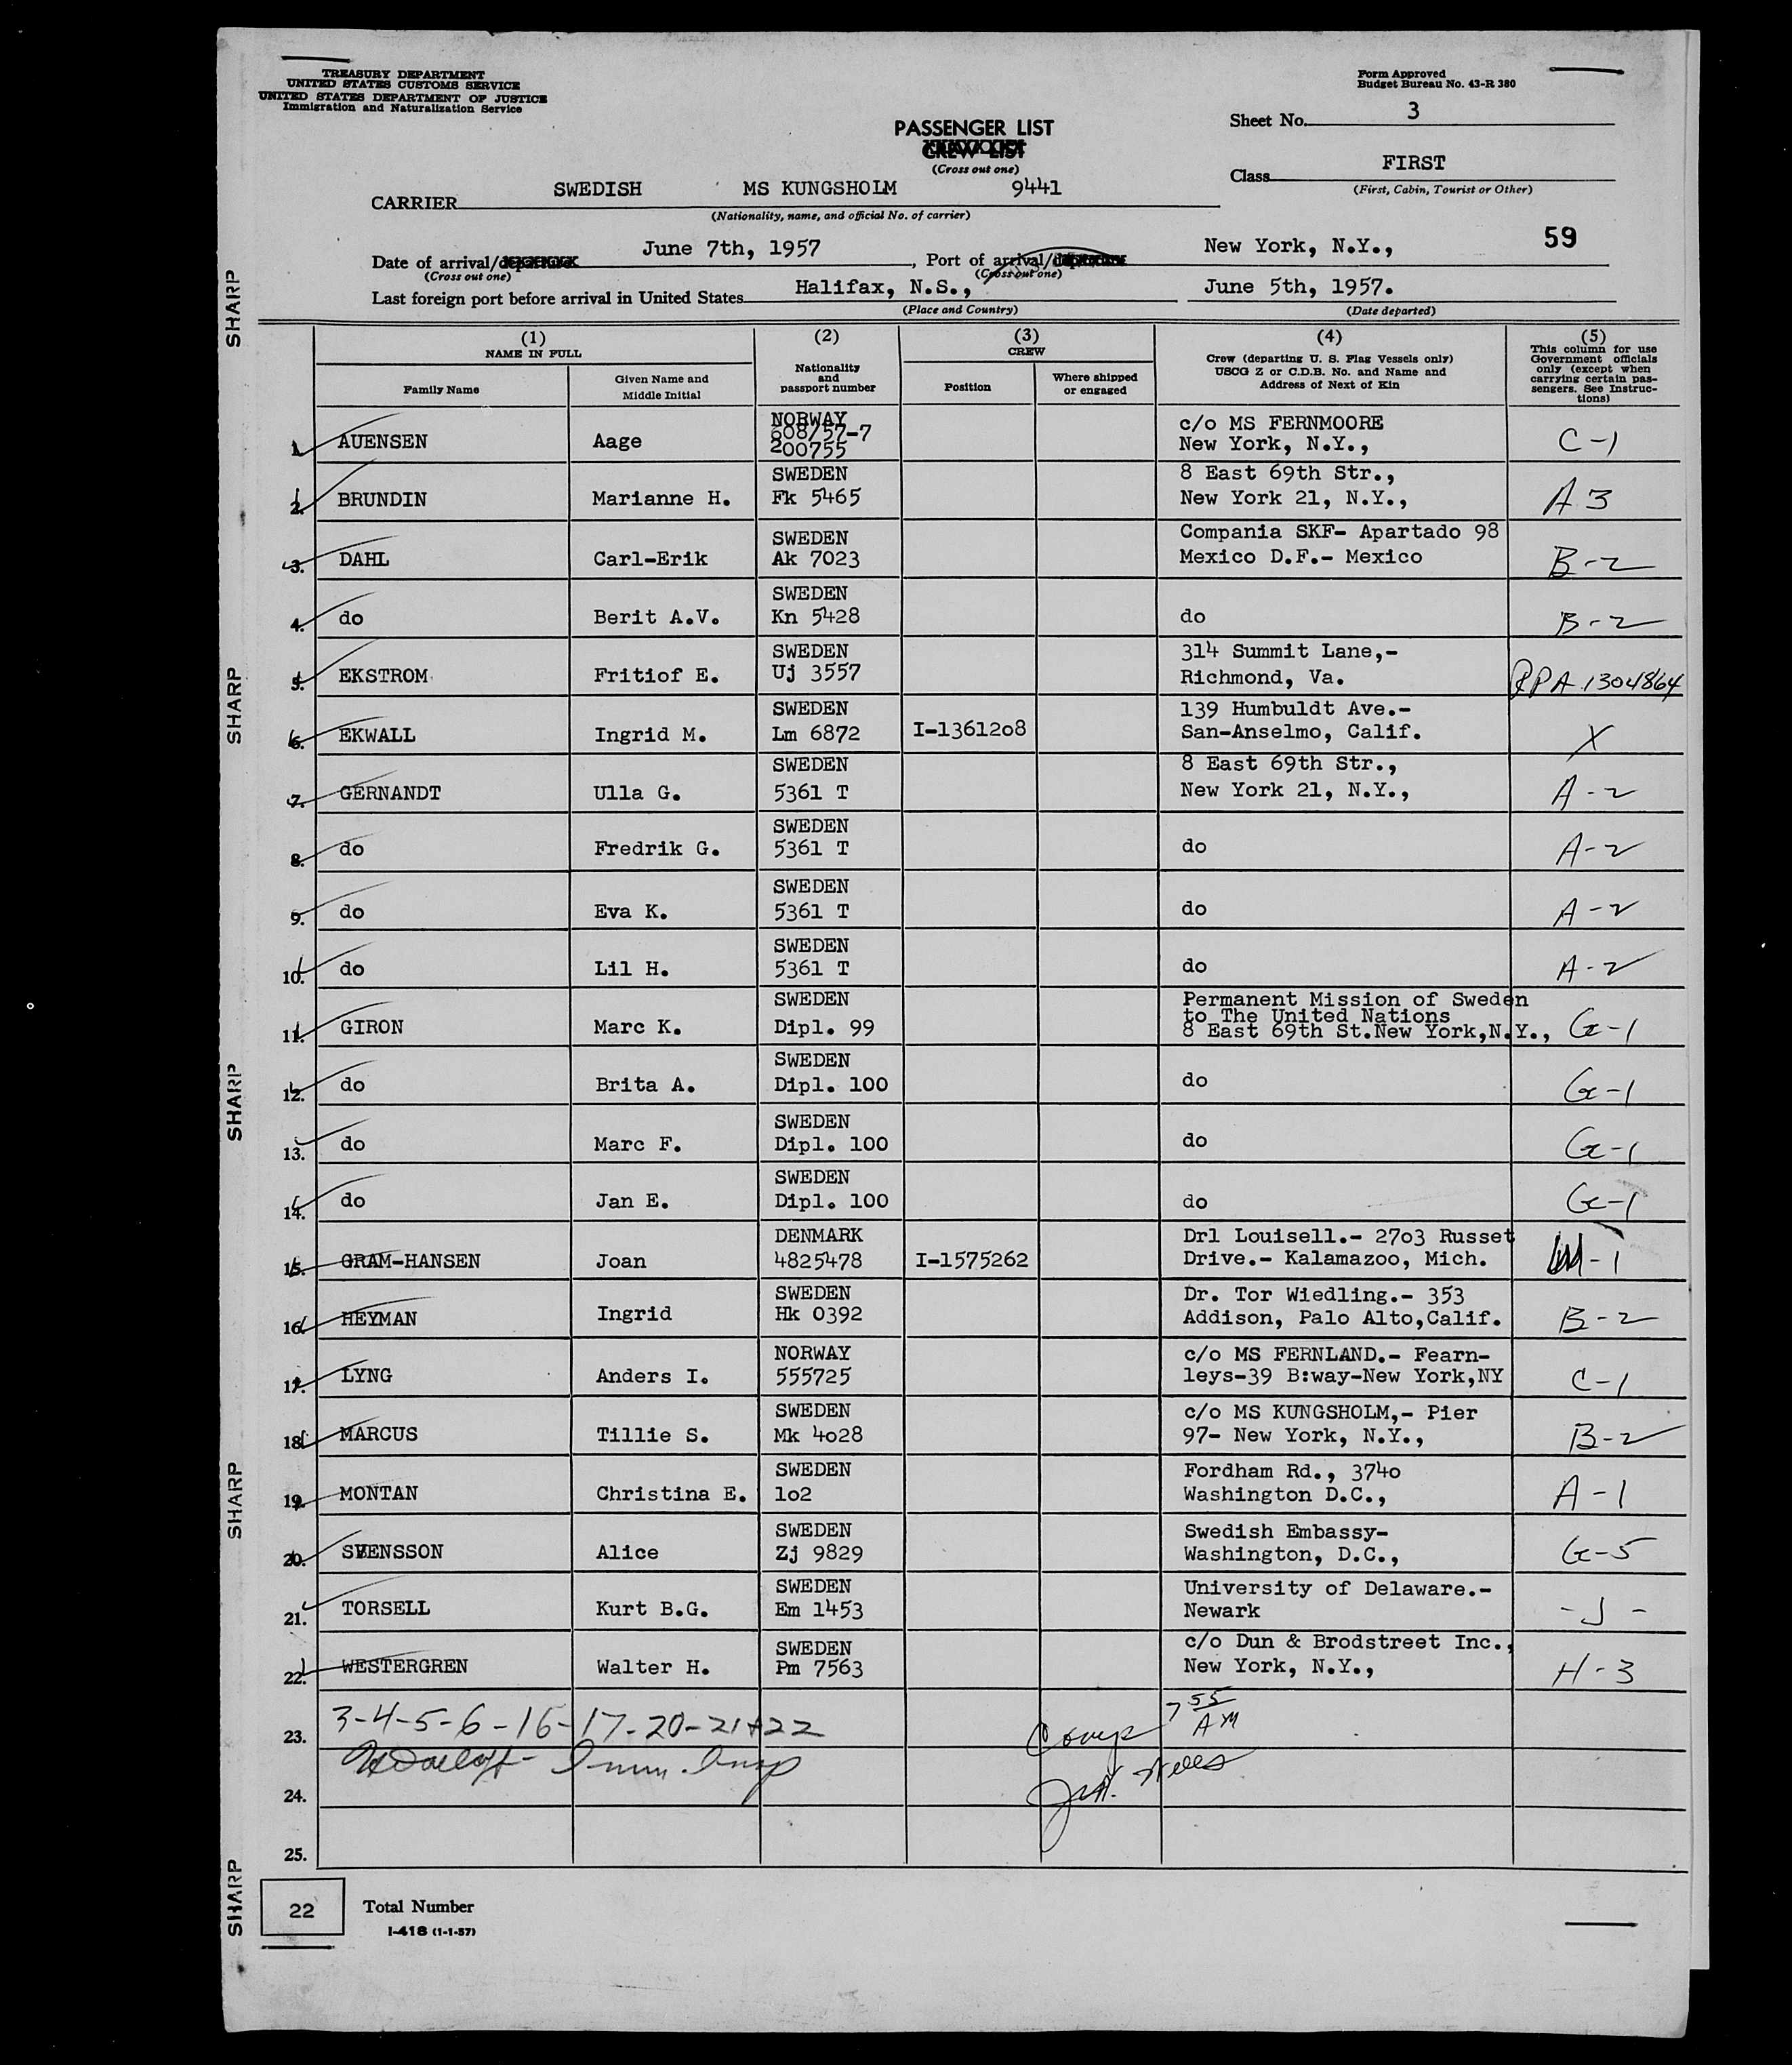 TREASURY DEPARTMENT
UNITED STATES CUSTOMS SERVICE
UNITED STATES DEPARTMENT OF JUSTICE
Immigration and Naturalization Service
Form Approved
Budget Bureau No. 43-R 380
Sheet No. 3
PASSENGER LIST
CREW LIST
(Cross out one)
Class FIRST
(First, Cabin, Tourist or Other)
CARRIER SWEDISH MS KUNGSHOLM 9441
(Nationality, name, and official No. of carrier)
Date of arrival/ June 7th, 1957, Port of arrival/ New York, N.Y., 59
(Cross out one) (Cross out one)
Last foreign port before arrival in United States Halifax, N.S., June 5th, 1957.
(Place and Country) (Date departed)
(1) (2) (3) (4) (5)
NAME IN FULL
Family Name
Given Name and
Middle Initial
Nationality
and
passport number
CREW
Position
Where shipped
or engaged
Crew (departing U. S. Flag Vessels only)
USCG Z or C.D.B. No. and Name and
Address of Next of Kin
This column for use
Government officials
only (except when
carrying certain pas-
sengers. See Instruc-
tions)
NORWAY c/o MS FERNMOORE
608/57-7
1. AUENSEN Aage 200755 New York, N.Y., C-1
SWEDEN 8 East 69th Str.,
2. BRUNDIN Marianne H. Fk 5465 New York 21, N.Y., A 3
SWEDEN Compania SKF- Apartado 98
3. DAHL Carl-Erik Ak 7023 Mexico D.F.- Mexico B-2
SWEDEN
4. do Berit A.V. Kn 5428 do B-2
SWEDEN 314 Summit Lane,-
5. EKSTROM Fritiof E. Uj 3557 Richmond, Va. RPA 1304864
SWEDEN 139 Humbuldt Ave.-
6. EKWALL Ingrid M. Lm 6872 I-1361208 San-Anselmo, Calif. X
SWEDEN 8 East 69th Str.,
7. GERNANDT Ulla G. 5361 T New York 21, N.Y., A-2
SWEDEN
8. do Fredrik G. 5361 T do A-2
SWEDEN
9. do Eva K. 5361 T do A-2
SWEDEN
10. do Lil H. 5361 T do A-2
SWEDEN Permanent Mission of Sweden
to The United Nations
11. GIRON Marc K. Dipl. 99 8 East 69th St.New York,N.Y., G-1
SWEDEN
12. do Brita A. Dipl. 100 do G-1
SWEDEN
13. do Marc F. Dipl. 100 do G-1
SWEDEN
14. do Jan E. Dipl. 100 do G-1
DENMARK Drl Louisell.- 2703 Russet
15. GRAM-HANSEN Joan 4825478 I-1575262 Drive.- Kalamazoo, Mich. -1
SWEDEN Dr. Tor Wiedling.- 353
16. HEYMAN Ingrid Hk 0392 Addison, Palo Alto,Calif. B-2
NORWAY c/o MS FERNLAND.- Fearn-
17. LYNG Anders I. 555725 leys-39 B:way-New York,NY C-1
SWEDEN c/o MS KUNGSHOLM,- Pier
18. MARCUS Tillie S. Mk 4028 97- New York, N.Y., B-2
SWEDEN Fordham Rd., 3740
19. MONTAN Christina E. 102 Washington D.C., A-1
SWEDEN Swedish Embassy-
20. SVENSSON Alice Zj 9829 Washington, D.C., G-5
SWEDEN University of Delaware.-
21. TORSELL Kurt B.G. Em 1453 Newark - J -
SWEDEN c/o Dun & Brodstreet Inc.,
22. WESTERGREN Walter H. Pm 7563 New York, N.Y., H-3
23. 3-4-5-6-16-17-20-21+22 Comp 7 55 AM
Imm. Insp
24.
25.
22 Total Number
I-418 (1-1-57)
SHARP
SHARP
SHARP
SHARP
SHARP